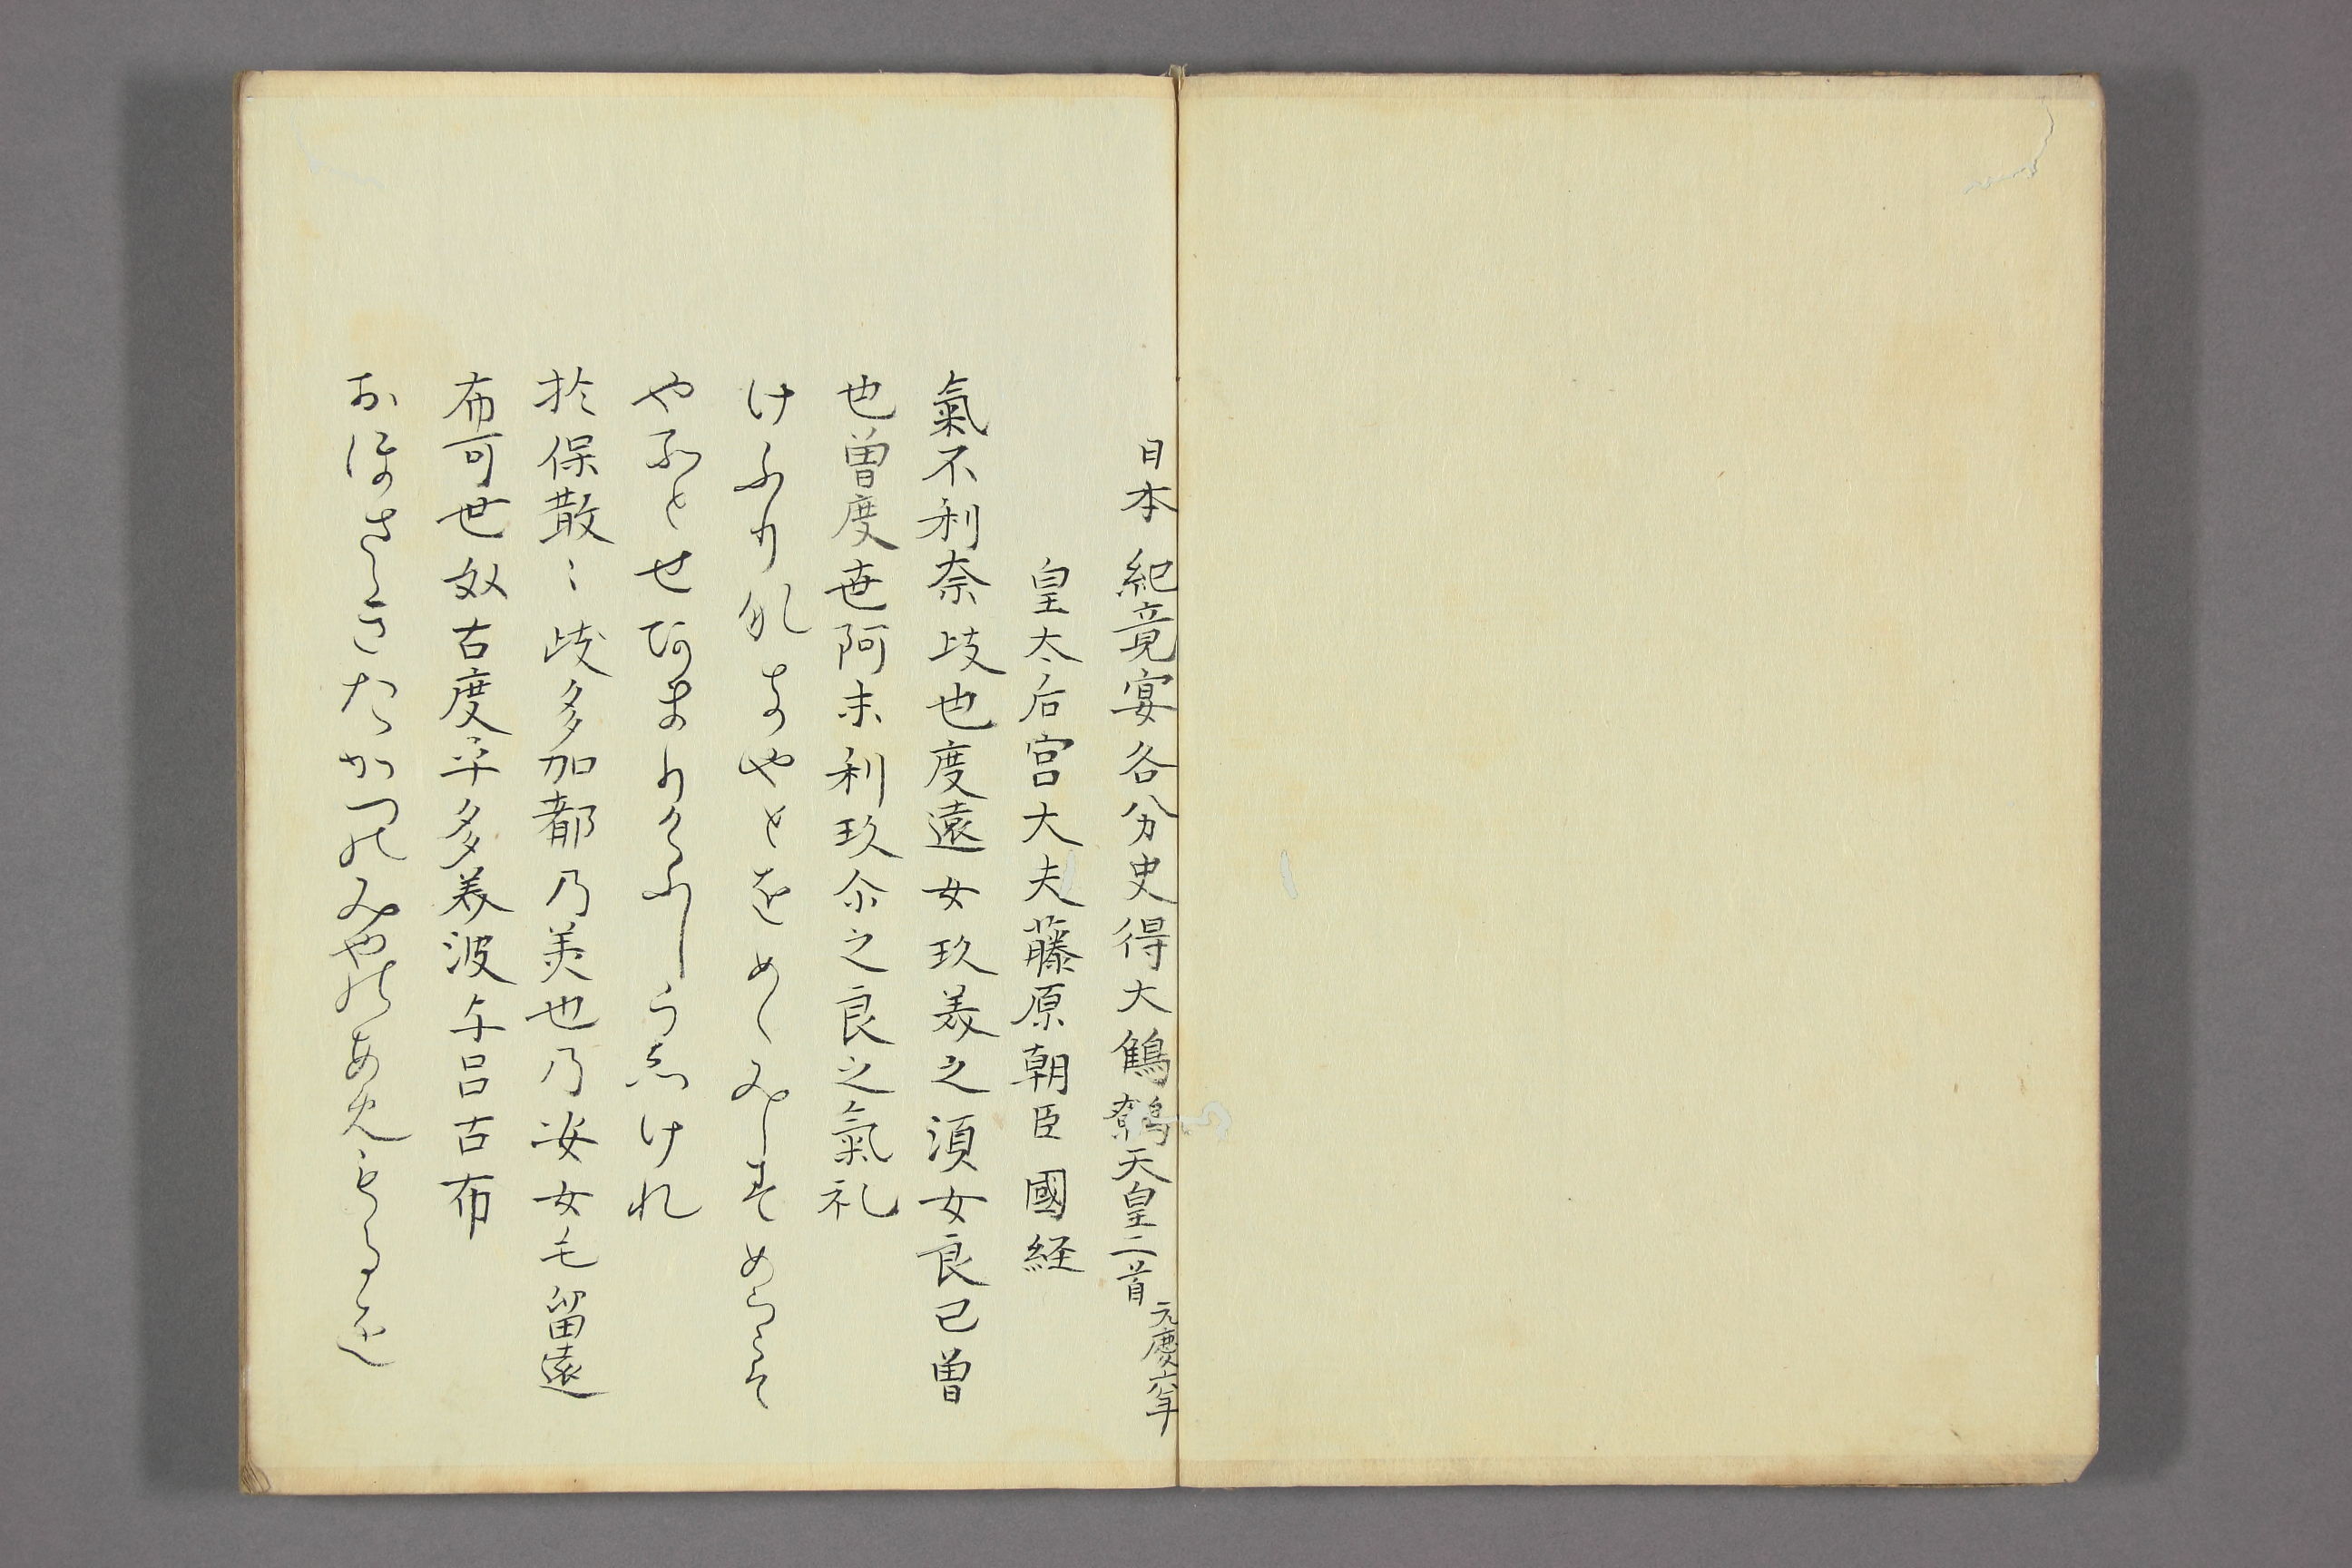 日本紀竟宴各分史得大鶺鷯天皇二首 元慶六年
皇太后宮大夫藤原朝臣國経
氣不利奈岐也度遠女玖美之須女良己曽
也曽度世阿末利玖尓之良之氣礼
けふりなきやとをめくみしすめらこそ
やそとせあまりくにしらしけれ
於保散〻岐多加都乃美也乃安女毛留遠
布可世奴古度乎多美波与呂古布
おほさゝきたかつのみやのあめもるを